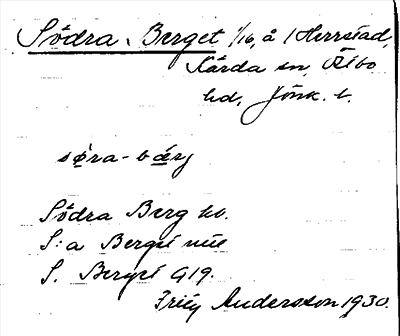 Södra Berget 1/16, å 1 Herrstad,
Kärda sn, Östbo
hd, Jönk. l.
søra-bærj
Södra Berg hb.
S:a Berget
S. Berget G19.
Frity Andersson 1930.